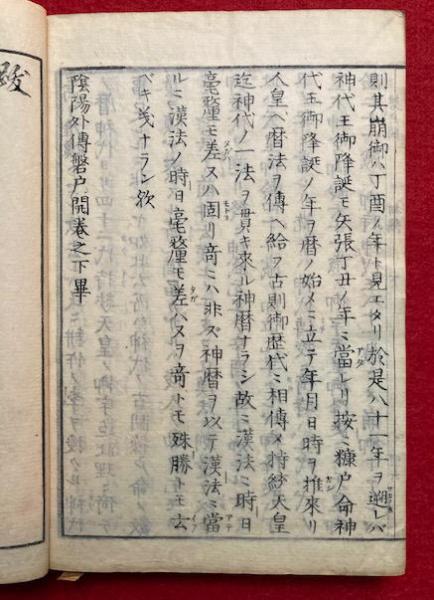 則其崩御ハ丁酉ノ年ト見エタリ於是八十一年ヲ遡レバ
神代王御降誕モ矢張丁丑ノ年ニ當レリ按ニ糠戸命神
代王御降誕ノ年ヲ暦ノ始メニ立テ年月日時ヲ推來リ
人皇ヘ暦法ヲ傳ヘ給フ古則御歴代ニ相傳メ持統天皇
迄神代ノ一法ヲ貫キ來ル神暦ナラシ故ニ漢法ニ時日
毫釐モ差ヌハ固リ竒ニハ非ズ神暦ヲ以テ漢法ニ當
ルニ漢法ノ時日毫釐モ差ハヌヲ竒トモ殊勝トモ云
ベキ義ナラン欤
陰陽外傳磐戸開巻之下畢
跋